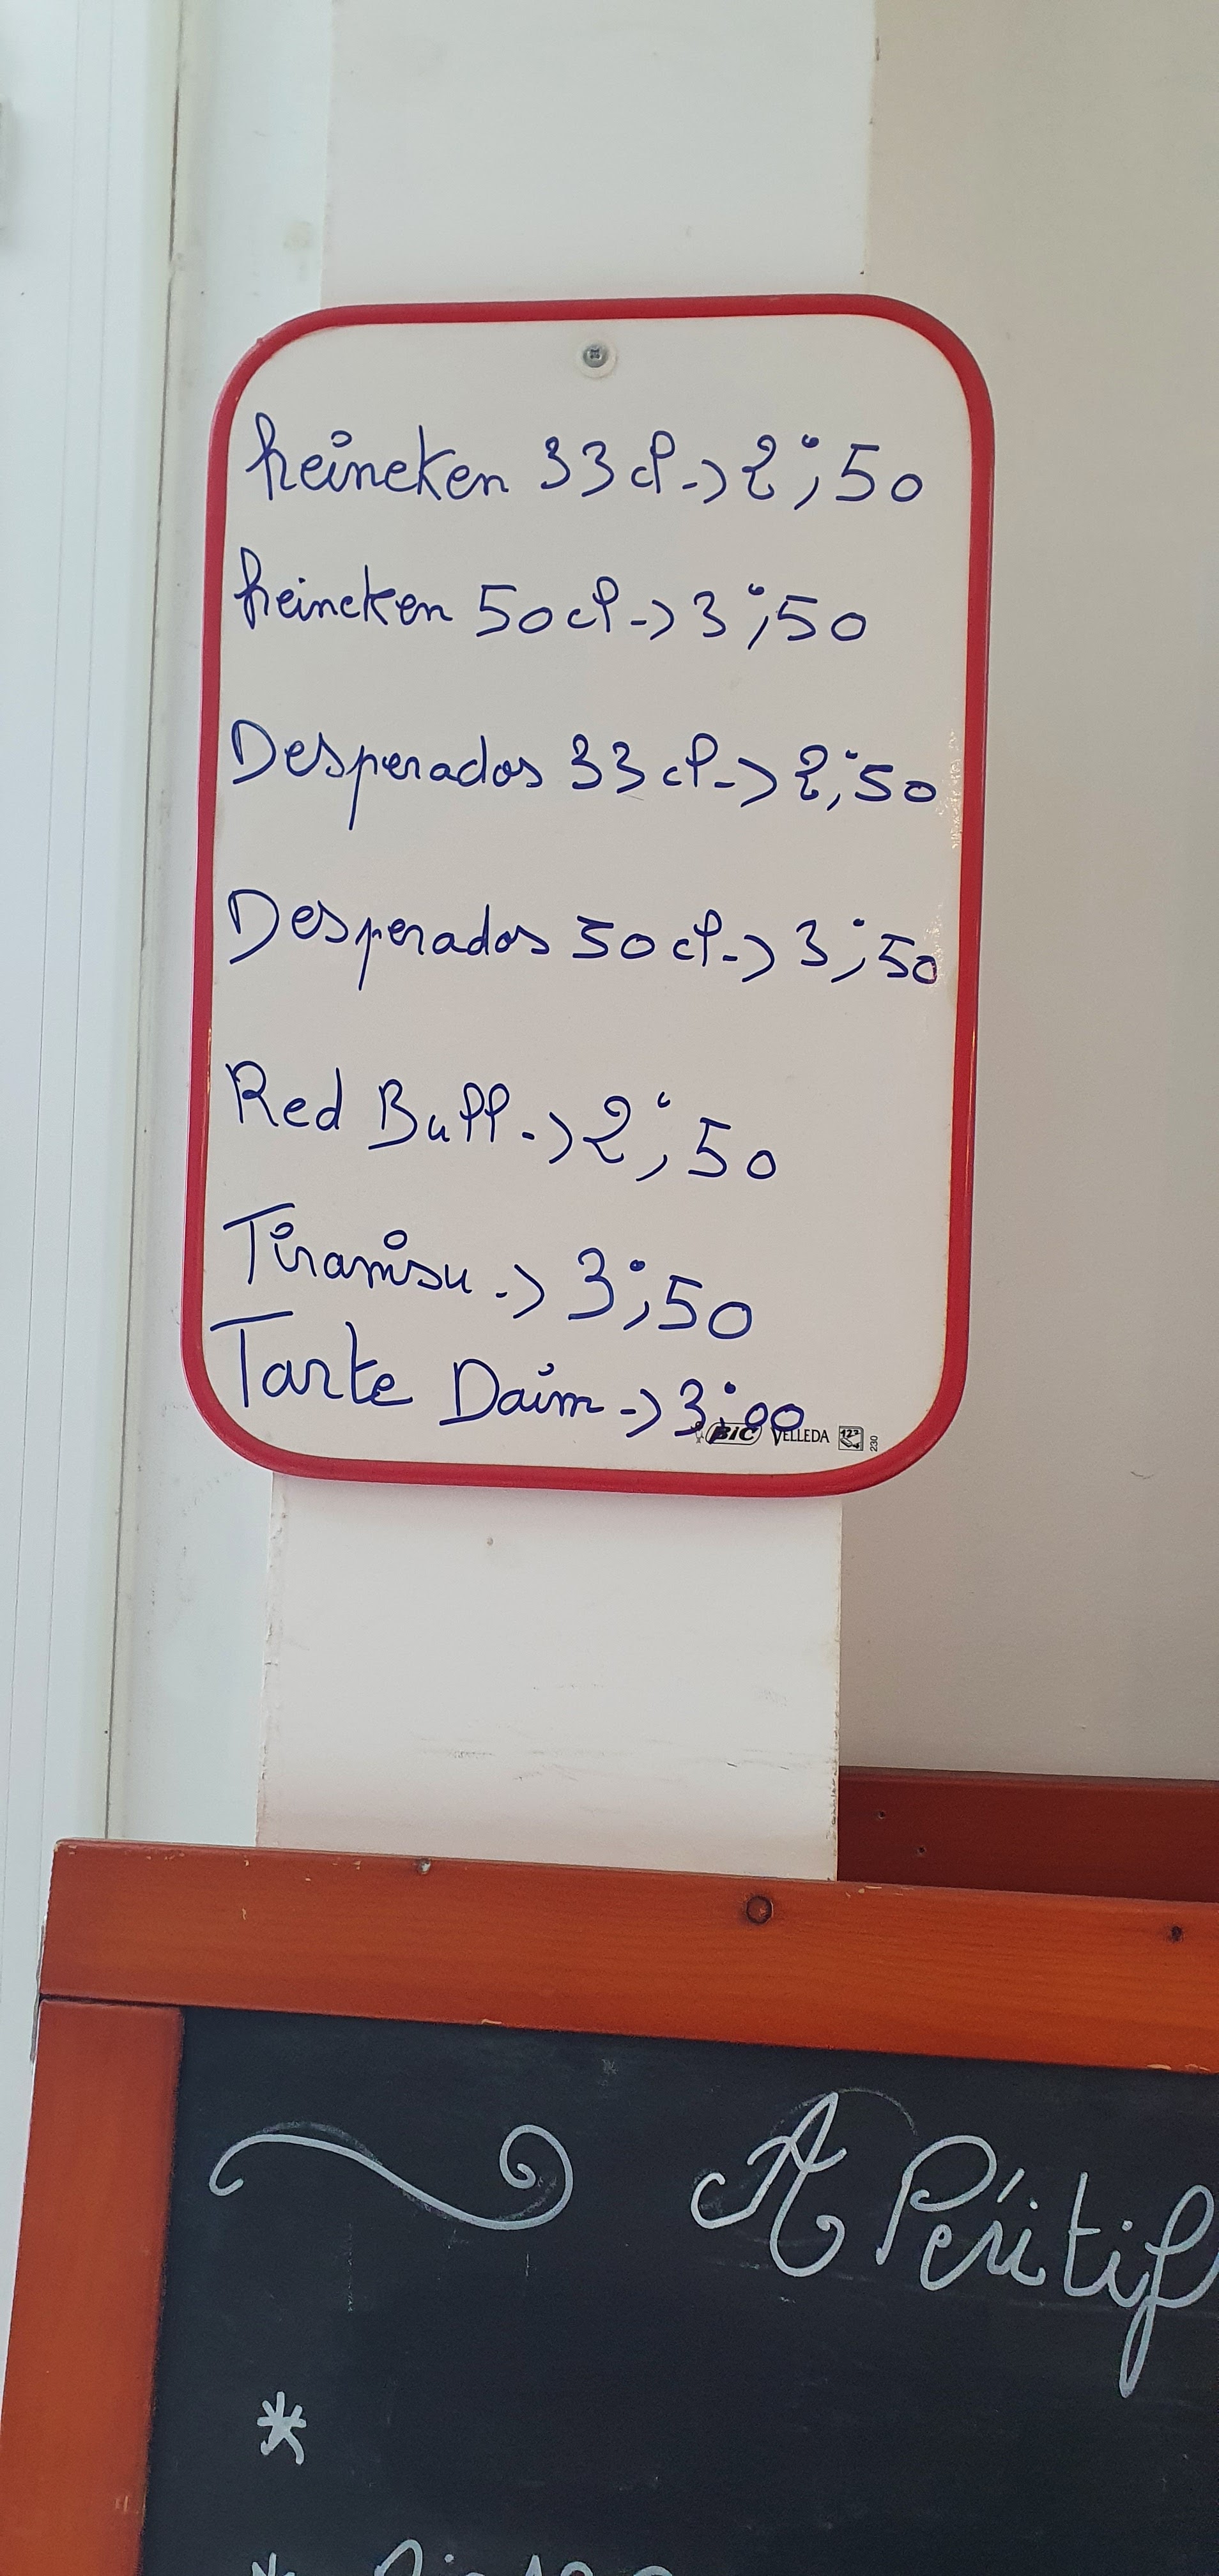 heineken 33cl->2;50
heineken 50cl->3;50
Desperados 33cl->2;50
Desperados 50cl->3;50
Red Bull->2;50
Tiramisu->3;50
Tarte Daim->3;00
BIC VELLEDA 230
Apéritif
*
*